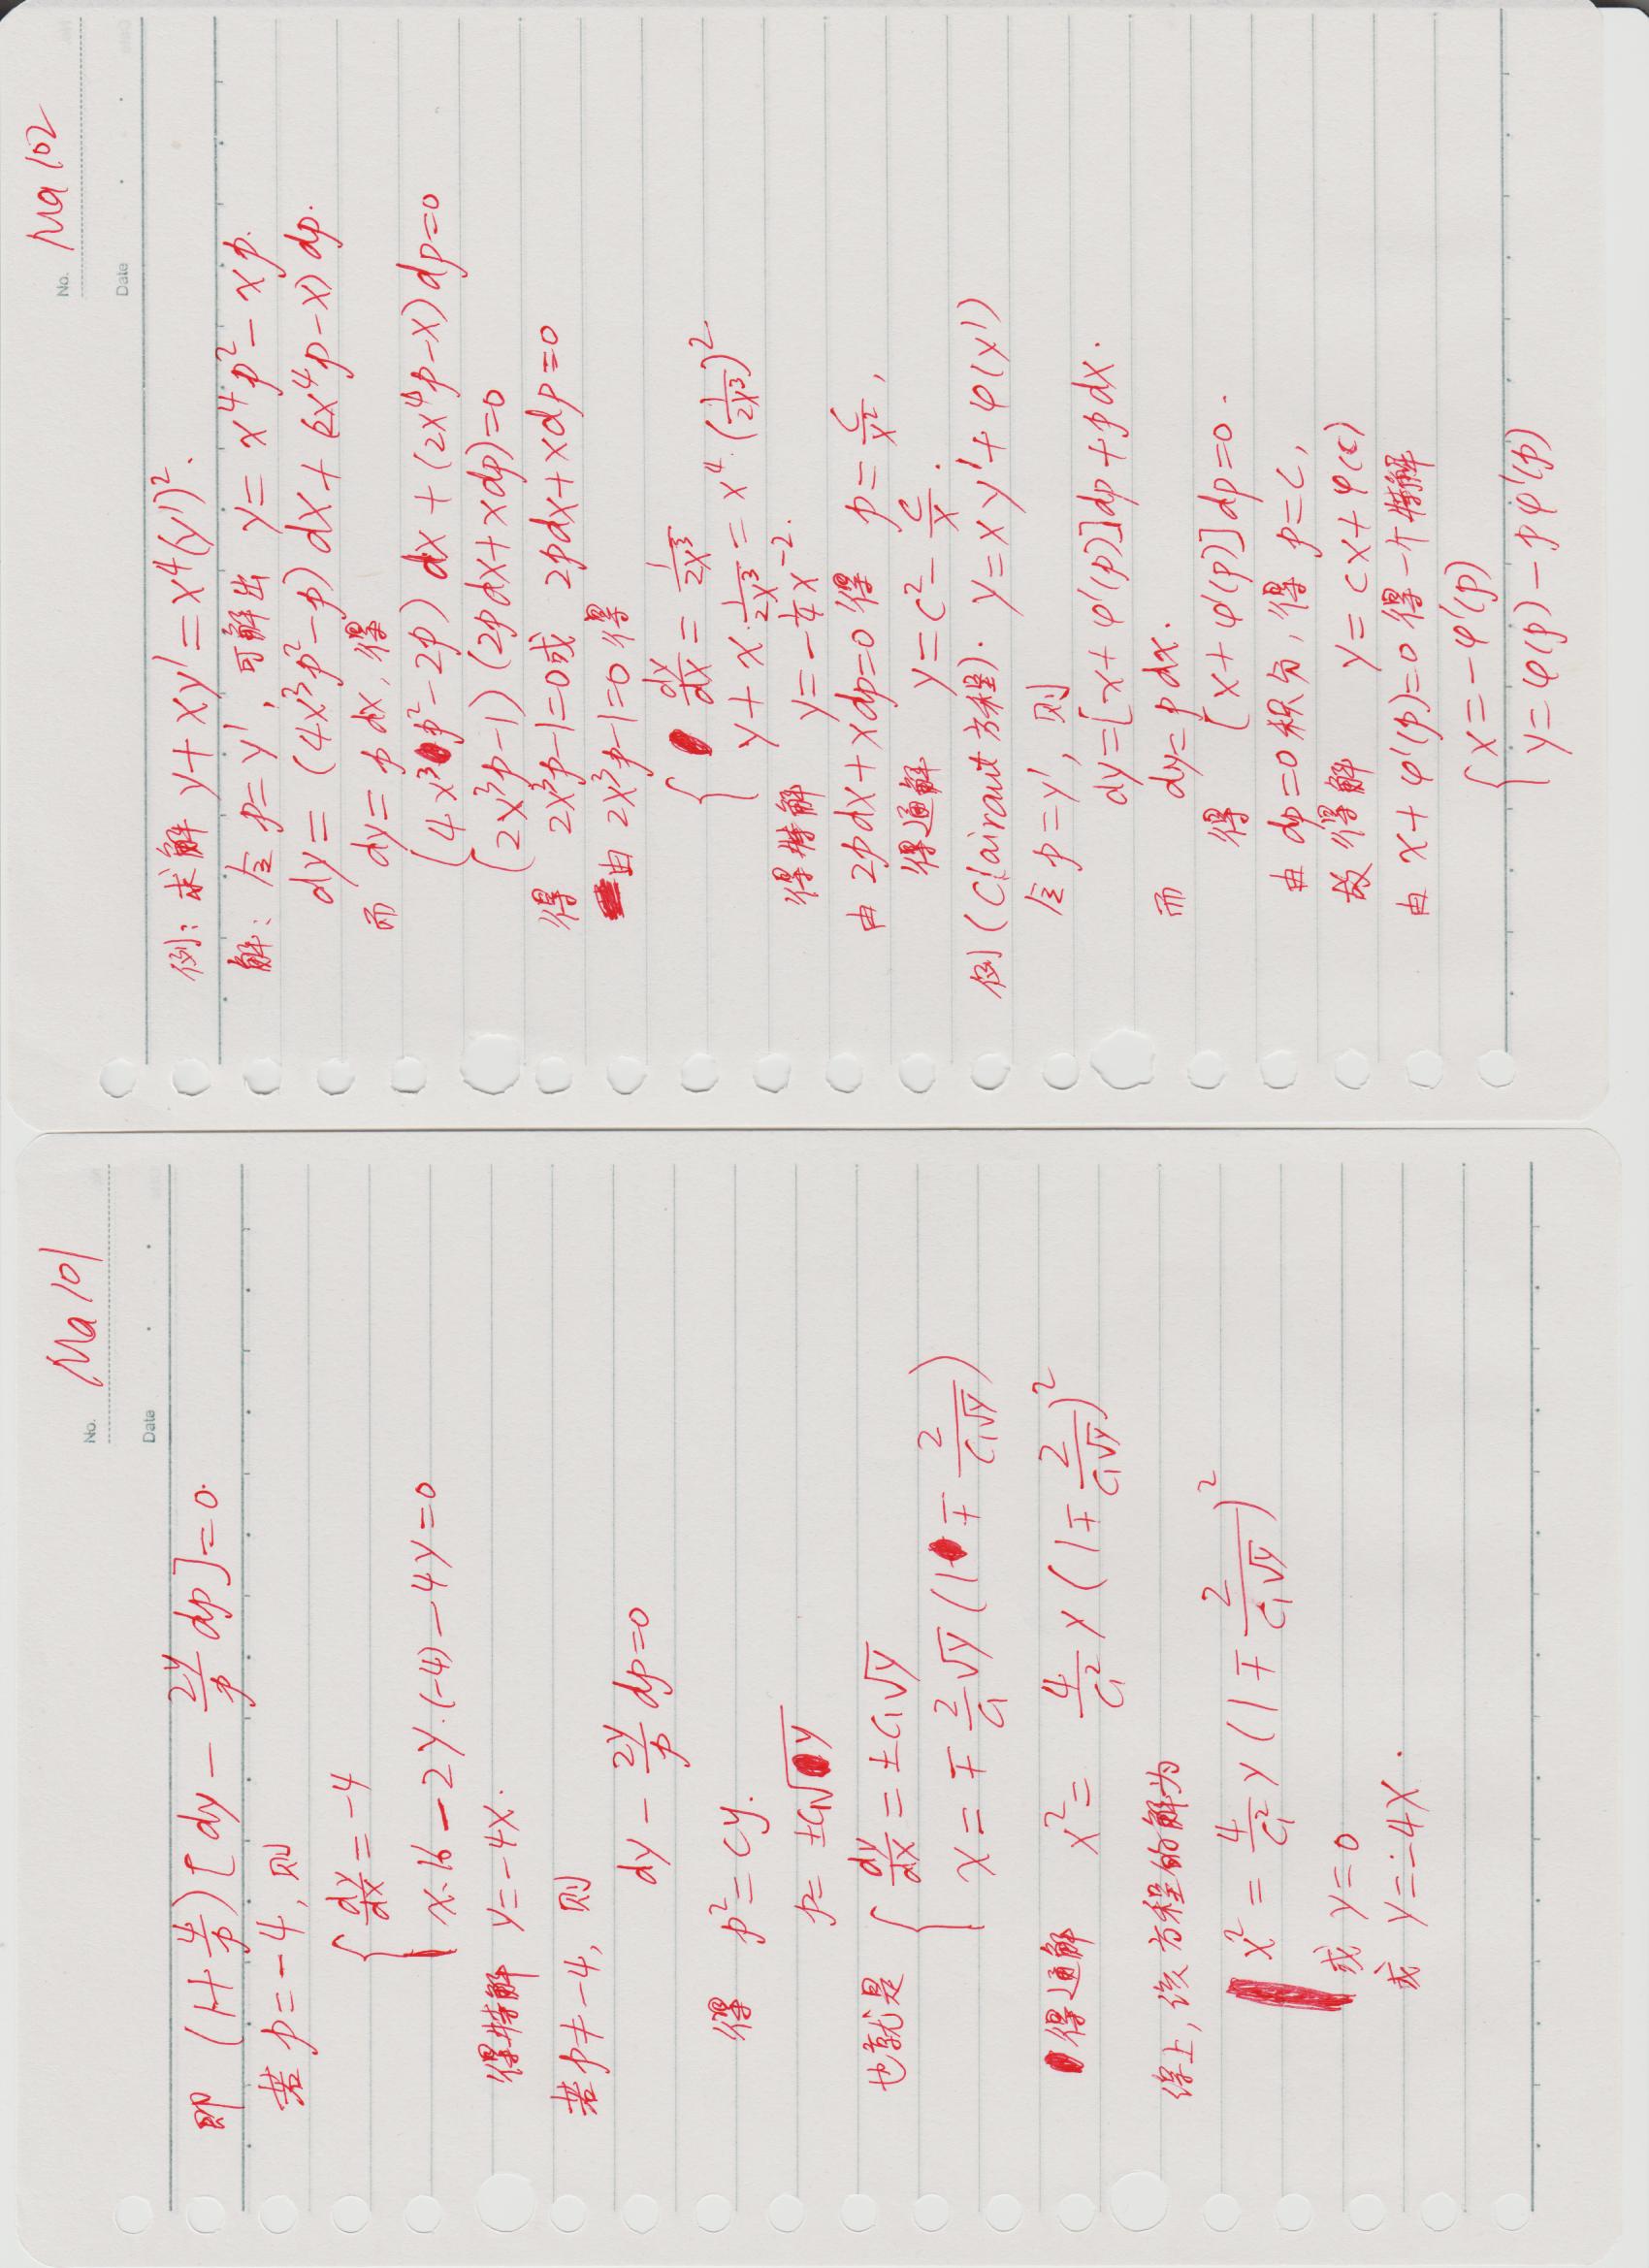 No. Ma 101
Date
即 (1+4/p)[dy - 2y/p dp]=0.
若 p=-4, 则
{ dy/dx = -4
x·16 - 2y·(-4) - 4y = 0
得特解 y=-4x.
若 p≠-4, 则
dy - 2y/p dp=0
得 p²=cy.
p= ±C₁√y
也就是 { dy/dx = ±C₁√y
x = ∓ 2/C₁ √y (1 ∓ 2/(C₁√y))
得通解 x² = 4/C₁² y (1 ∓ 2/(C₁√y))²
综上, 该方程的解为
x² = 4/C₁² y (1 ∓ 2/(C₁√y))²
或 y=0
或 y=-4x.
No. Ma 102
Date
例: 求解 y+xy'=x⁴(y')².
解: 令 p=y', 可解出 y= x⁴p²-xp.
dy= (4x³p²-p) dx + (2x⁴p-x) dp.
而 dy= p dx, 得
(4x³p²-2p) dx + (2x⁴p-x) dp=0
(2x³p-1) (2pdx+xdp)=0
得 2x³p-1=0 或 2pdx+xdp=0
由 2x³p-1=0 得
{ dy/dx = 1/(2x³)
y+ x·1/(2x³) = x⁴·(1/(2x³))²
得特解 y=-1/4 x⁻².
由 2pdx+xdp=0 得 p= c/x²,
得通解 y=c²- c/x.
例 (Clairaut 方程). y=xy'+φ(y')
令 p=y', 则
dy=[x+φ'(p)]dp+pdx.
而 dy=pdx.
得 [x+φ'(p)]dp=0.
由 dp=0 积分, 得 p=c,
故得解 y=cx+φ(c)
由 x+φ'(p)=0 得一个特解
{ x=-φ'(p)
y=φ(p)-pφ'(p)